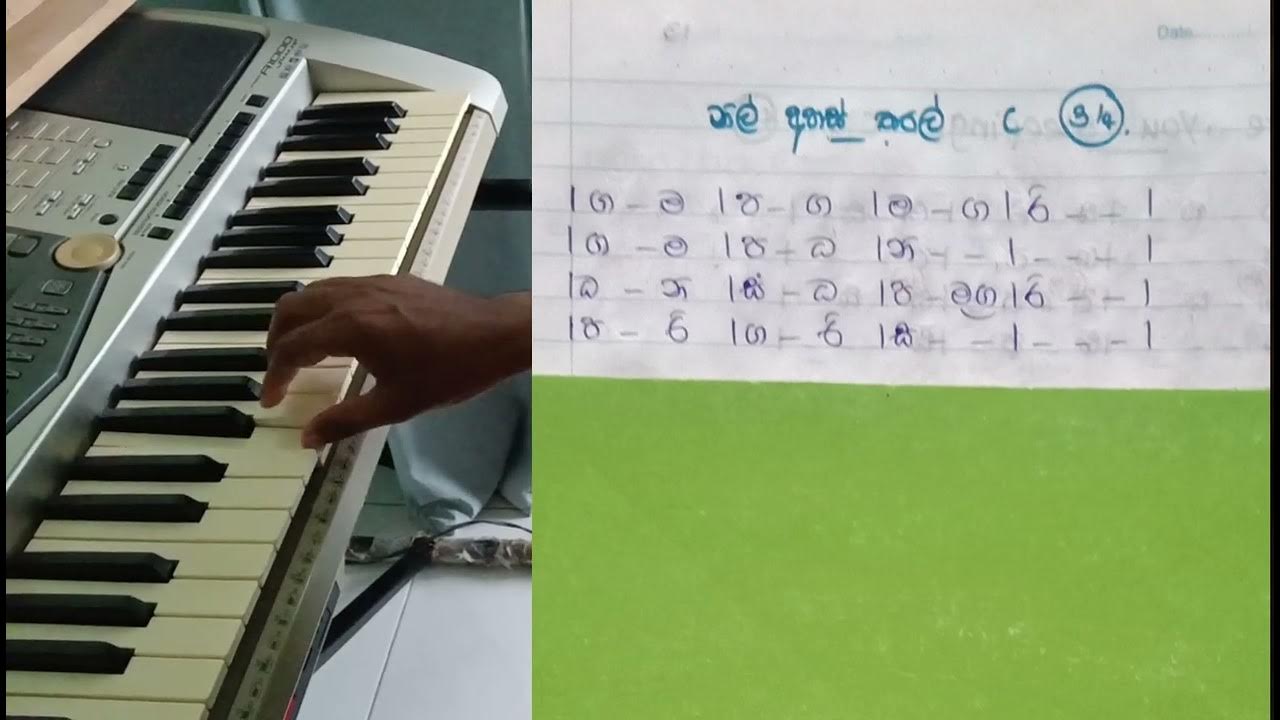 A1000
Date
නිල් අහස් තලේ C 3/4.
| ග - ම | ප - ග | ම - ග | රි - - |
| ග - ම | ප - ධ | න - - | - - - |
| ධ - න | ස් - ධ | ප - මග | රි - - |
| ප - රි | ග - රි | ස - - | - - - |